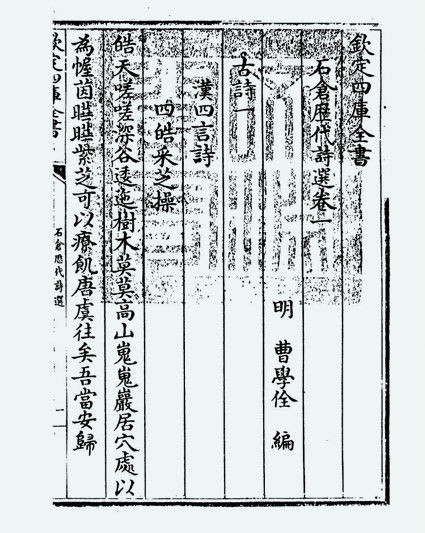 欽定四庫全書
石倉歴代詩選卷一
明 曹學佺 編
古詩一
漢四言詩
四皓采芝操
皓天嗟嗟深谷逶迤樹木莫莫高山嵬嵬巖居穴處以
為幄茵曄曄紫芝可以療飢唐虞往矣吾當安歸
欽定四庫全書
石倉歴代詩選
一